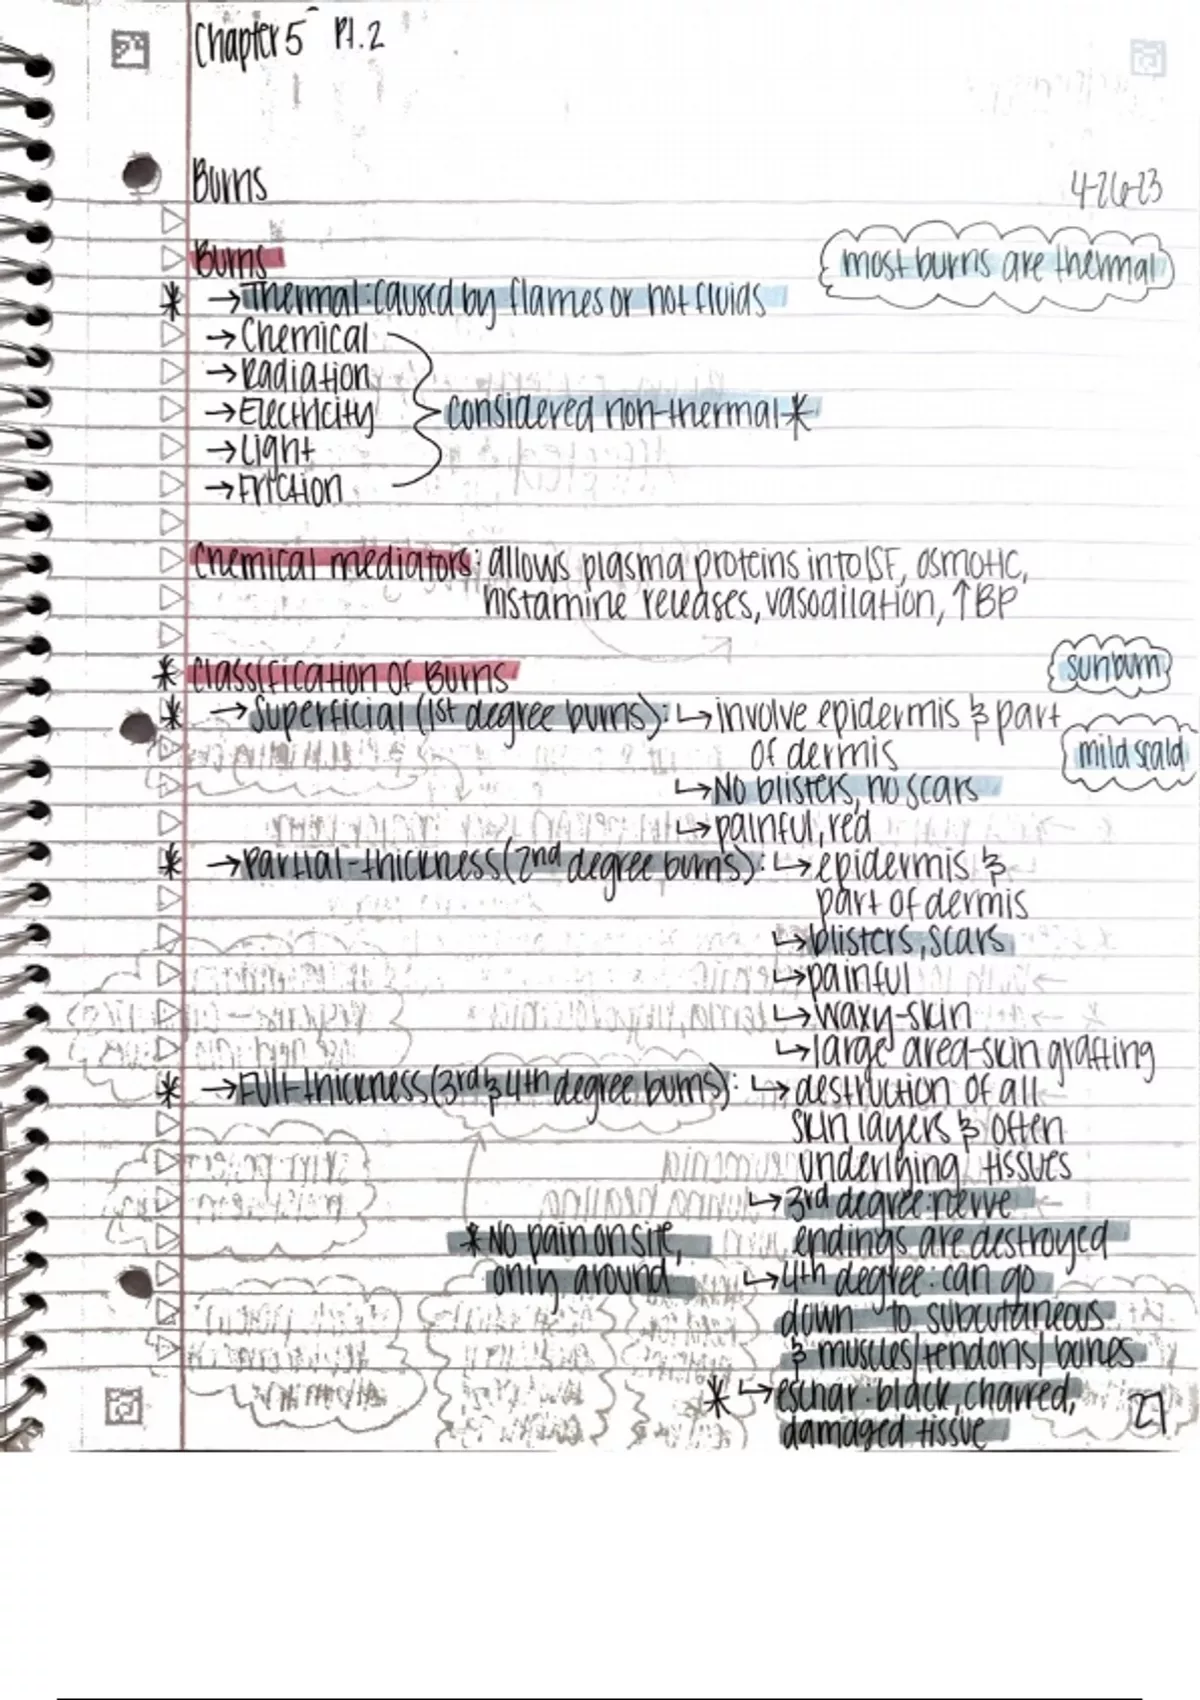 Chapter 5 Pt. 2
Burns 4-26-23
Burns
most burns are thermal
* →Thermal: caused by flames or hot fluids
→Chemical
→Radiation
→Electricity
considered non-thermal*
→Light
→Friction
Chemical mediators: allows plasma proteins into ISF, osmotic,
histamine releases, vasodilation, ↑BP
* Classification of Burns
sunburn
* →Superficial (1st degree burns): ↳involve epidermis & part
of dermis
mild scald
↳No blisters, no scars
↳painful, red
* →Partial-thickness (2nd degree burns): ↳epidermis &
part of dermis
↳blisters, scars
↳painful
↳waxy-skin
↳large area-skin grafting
* →Full-thickness (3rd & 4th degree burns): ↳destruction of all
skin layers & often
underlying tissues
↳3rd degree: nerve
endings are destroyed
*No pain on site,
only around
↳4th degree: can go
down to subcutaneous
& muscles/tendons/bones
* ↳eschar: black, charred,
damaged tissue
27